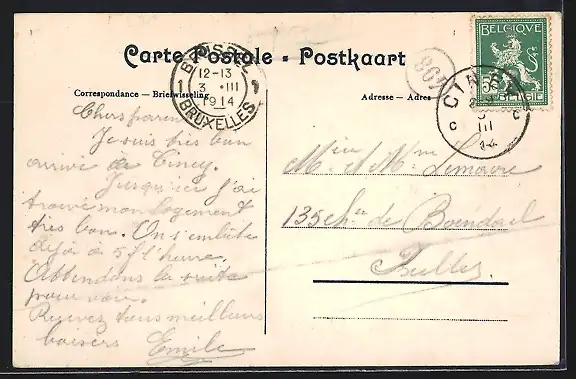 Carte Postale - Postkaart
Correspondance — Briefwisseling
Adresse — Adres
BRUSSEL
12-13
3 III
1914
BRUXELLES
408
BELGIQUE
5
BELGIE
CINEY
III
14
Chers parents
Je suis très bien
arrivé à Ciney.
Jusqu'ici j'ai
trouvé mon logement
très bon. On s'embête
déjà à 5 f l'heure.
Attendons la suite
pour voir.
Recevez tous meilleurs
baisers Emile
Mr & Mme Lemaire
135 ch. de Boendael
Ixelles.